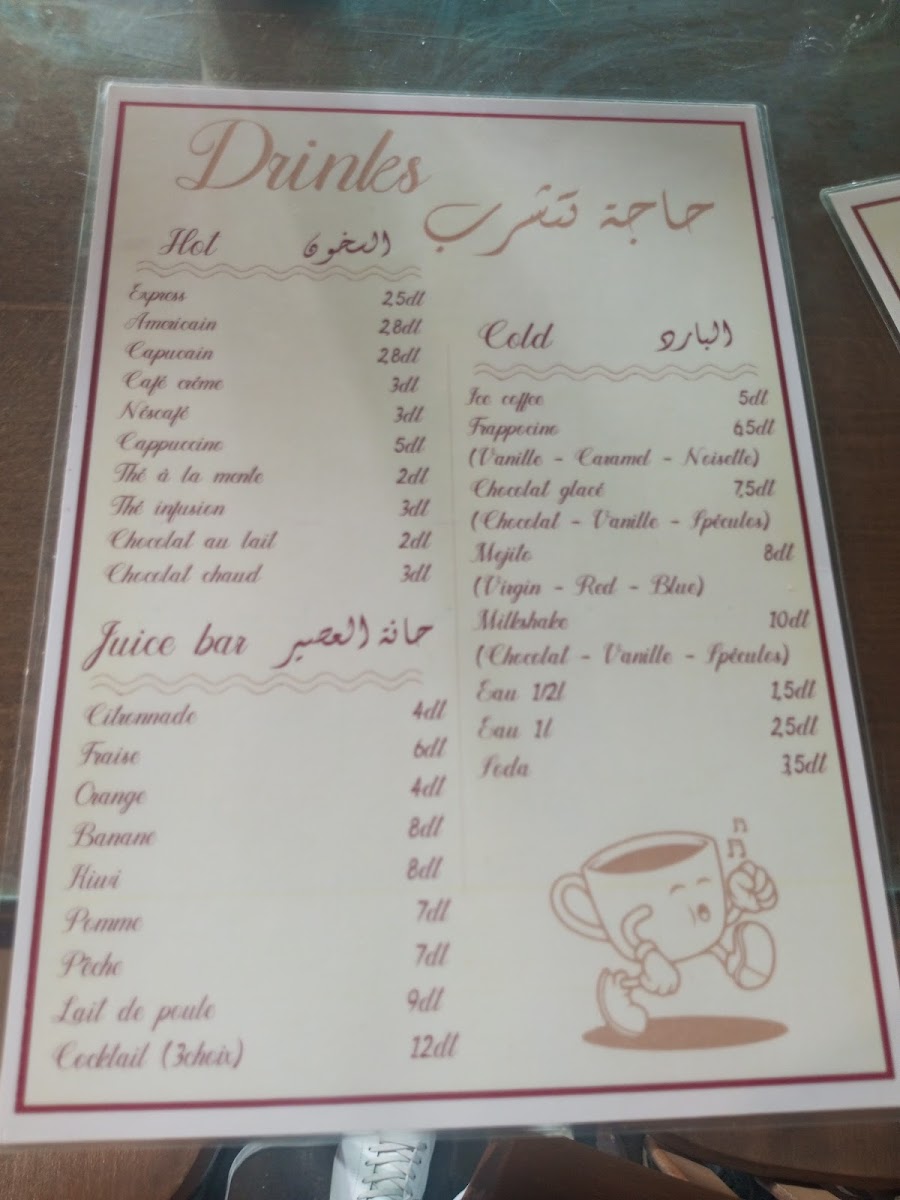 Drinks
حاجة تتشرب
Hot السخون
Express 2,5dt
Americain 2,8dt
Capucain 2,8dt
Café crème 3dt
Néscafé 3dt
Cappuccino 5dt
Thé à la mente 2dt
Thé infusion 3dt
Chocolat au lait 2dt
Chocolat chaud 3dt
Juice bar حانة العصير
Citronnade 4dt
Fraise 6dt
Orange 4dt
Banane 8dt
Kiwi 8dt
Pomme 7dt
Pêche 7dt
Lait de poule 9dt
Cocktail (3choix) 12dt
Cold البارد
Ice coffee 5dt
Frappocino 6,5dt
(Vanille - Caramel - Noisette)
Chocolat glacé 7,5dt
(Chocolat - Vanille - Spécules)
Mojito 8dt
(Virgin - Red - Blue)
Milkshake 10dt
(Chocolat - Vanille - Spécules)
Eau 1/2l 1,5dt
Eau 1l 2,5dt
Soda 3,5dt